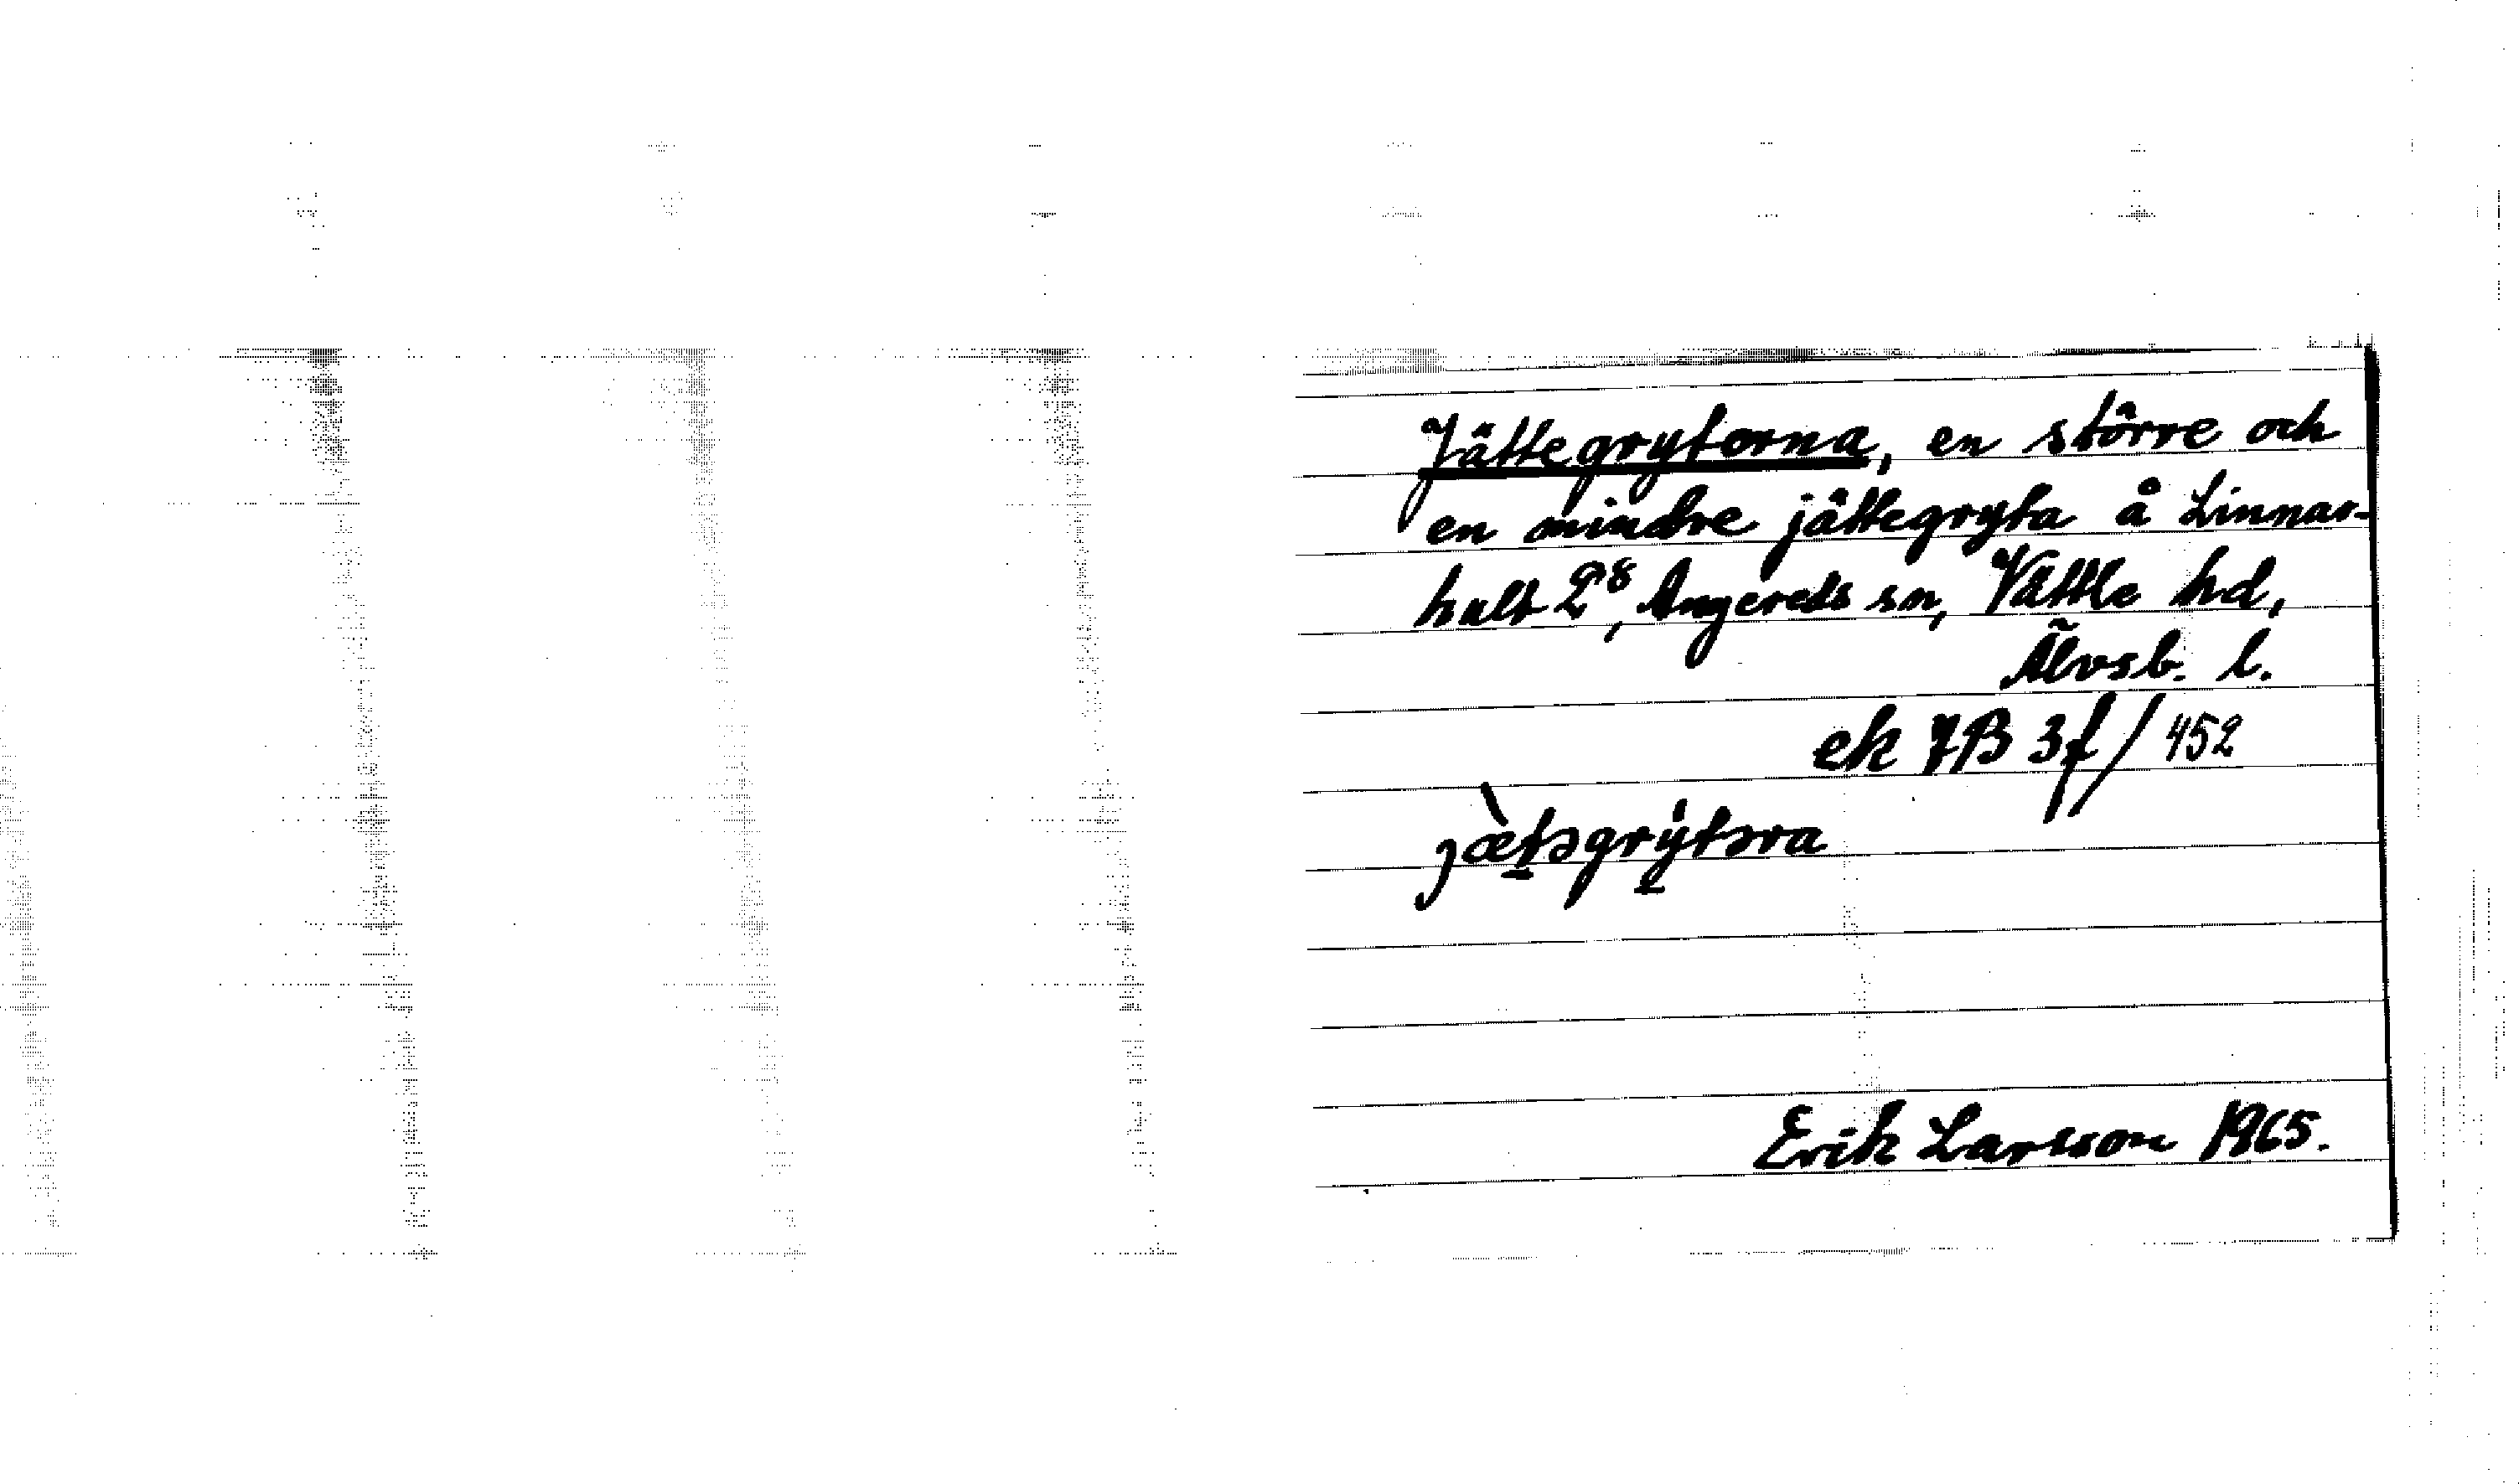 Jättegrytorna, en större och
en mindre jättegryta å Linnar-
hult 2⁸, Angereds sn, Vättle hd,
Älvsb. l.
ek 7B 3f / 452
jæ̀təgrýtəra
Erik Larsson 1965.